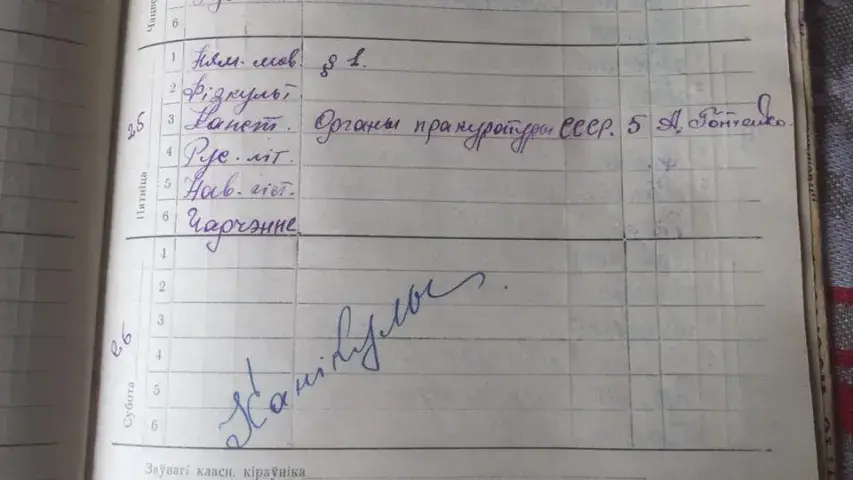 6
Пятніца 25
1 Ням. мов. § 1.
2 Фізкульт.
3 Канст. Органы пракуратуры СССР. 5
4 Рус. літ.
5 Нав. гіст.
6 Чарчэнне
Субота 26
1
2
3
4
5
6
Канікулы.
Заўвагі класн. кіраўніка